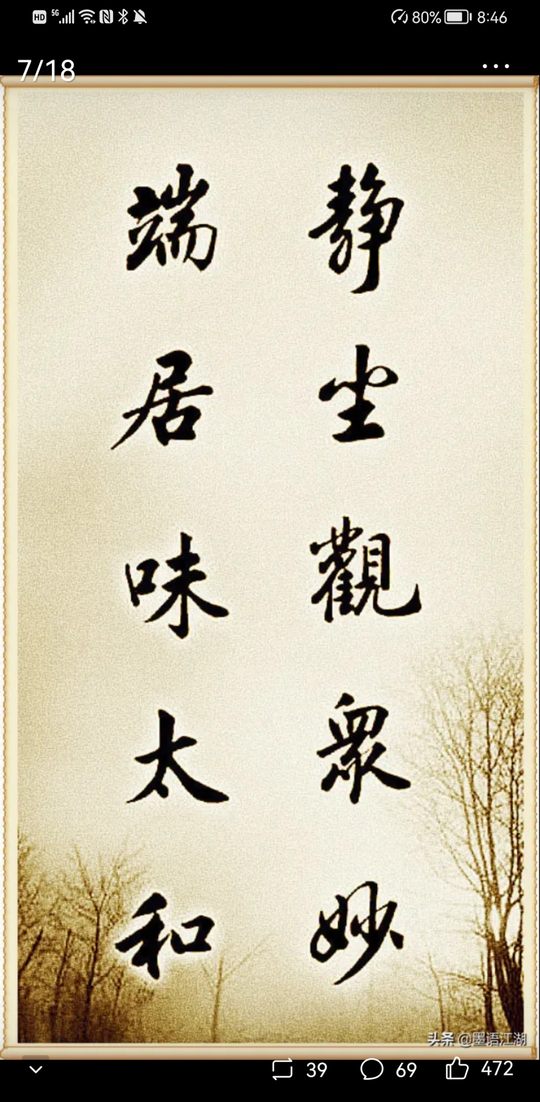 HD 5G 80% 8:46
7/18
静坐觀眾妙
端居味太和
头条 @墨语江湖
39 69 472